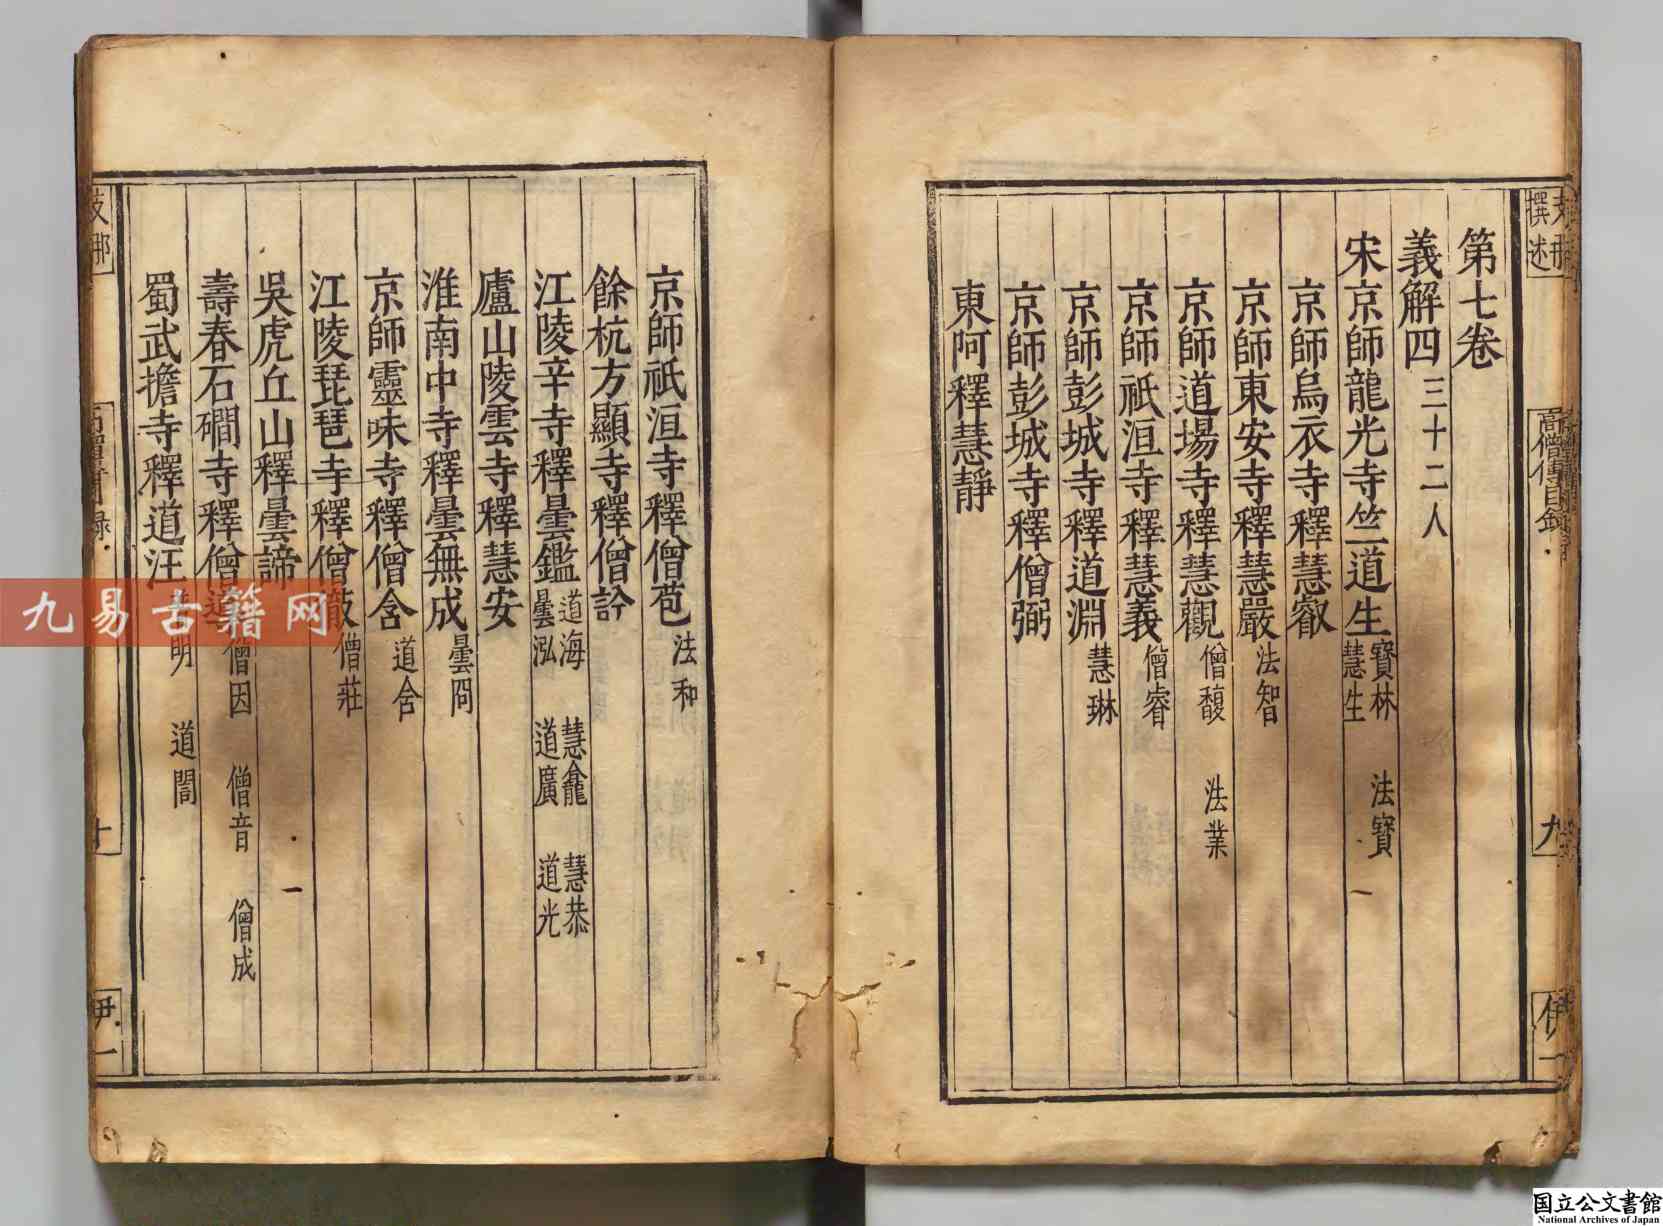 支那撰述
高僧傳目錄
九
伊一
第七卷
義解四三十二人
宋京師龍光寺竺道生寶林 法寶 慧生
京師烏衣寺釋慧叡
京師東安寺釋慧嚴法智
京師道場寺釋慧觀僧馥 法業
京師祇洹寺釋慧義僧睿
京師彭城寺釋道淵慧琳
京師彭城寺釋僧弼
東阿釋慧靜
京師祇洹寺釋僧苞法和
餘杭方顯寺釋僧詮
江陵辛寺釋曇鑑道海 慧龕 慧恭 曇泓 道廣 道光
廬山陵雲寺釋慧安
淮南中寺釋曇無成曇冏
京師靈味寺釋僧含道含
江陵琵琶寺釋僧徹僧莊
吳虎丘山釋曇諦
壽春石磵寺釋僧導僧因 僧音 僧成
蜀武擔寺釋道汪普明 道誾
支那
錄
十
伊一
九易古籍网
国立公文書館
National Archives of Japan